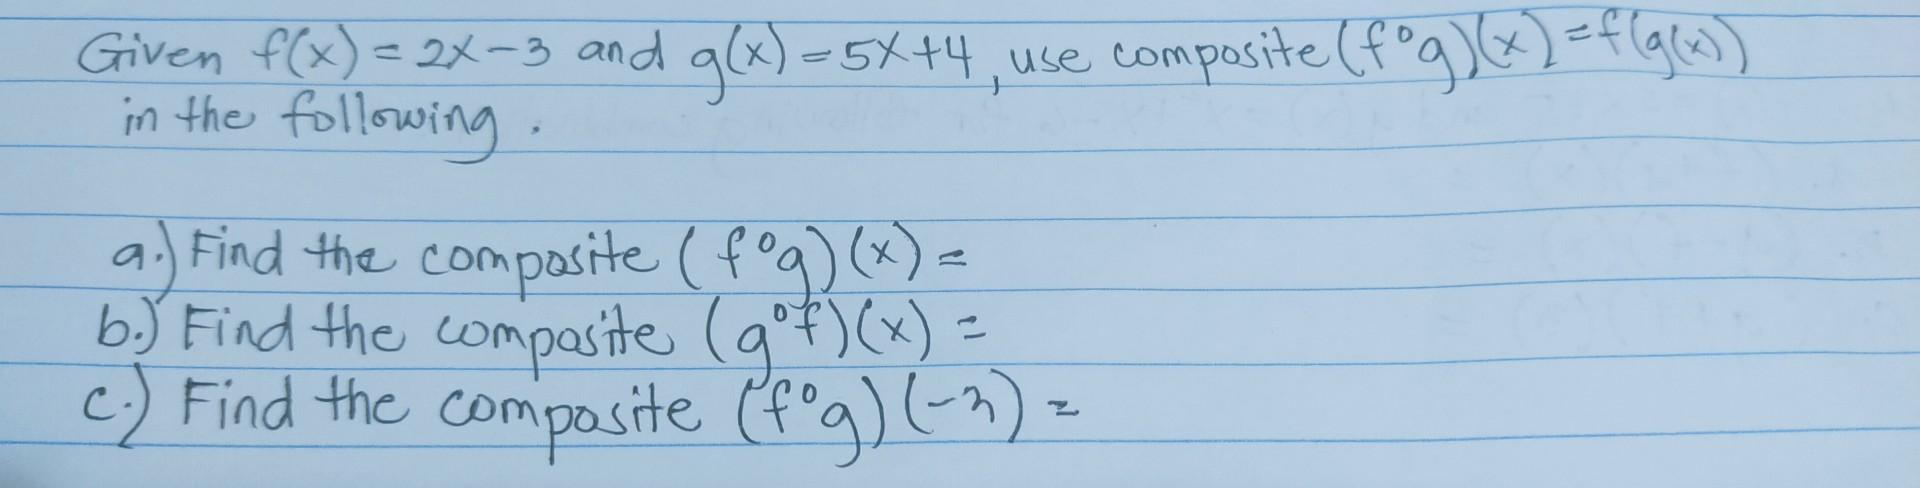 Given f(x) = 2x-3 and g(x) = 5x+4, use composite (f°g)(x) = f(g(x))
in the following.
a.) Find the composite (f°g)(x) =
b.) Find the composite (g°f)(x) =
c.) Find the composite (f°g)(-3) =